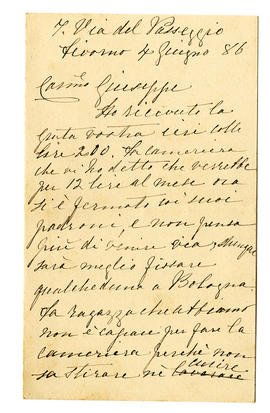 7. Via del Passeggio
Livorno 4 Giugno 86
Carmo Giuseppe
Ho ricevuto la
grata vostra ieri colle
lire 200. La cameriera
che vi ho detto che verrebbe
per 12 lire al mese ora
si è fermata coi suoi
padroni, e non pensa
più di venire via
sarà meglio fissare
qualcheduna a Bologna.
La ragazza che abbiamo
non è capace per fare la
cameriera perchè non
sa stirare nè cusire